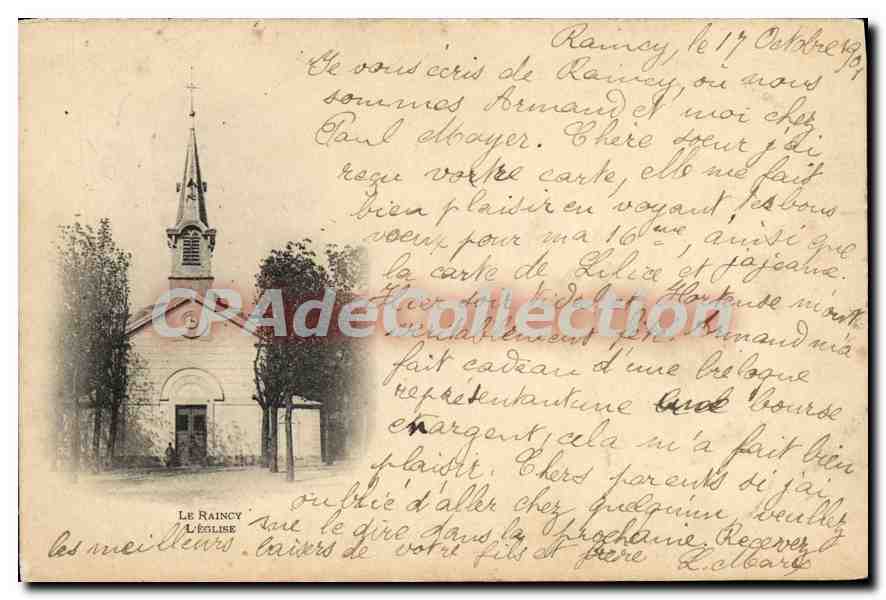 Raincy, le 17 Octobre 1901
Je vous écris de Raincy, où nous
sommes Armand et moi chez
Paul Mayer. Chere sœur j'ai
reçu votre carte, elle me fait
bien plaisir en voyant les bons
voeux pour ma 16me, ainsi que
la carte de Lilice et
Hier soir Fidel et Hortense m'ont
véritablement fêté. Armand m'a
fait cadeau d'une breloque
représentant une bourse
en argent, cela m'a fait bien
plaisir. Chers parents si j'ai
oublié d'aller chez quelqu'un, veuillez
me le dire dans la prochaine. Recevez
les meilleurs baisers de votre fils et frère
L. Marx
LE RAINCY
L'ÉGLISE
CPAdeCollection.com